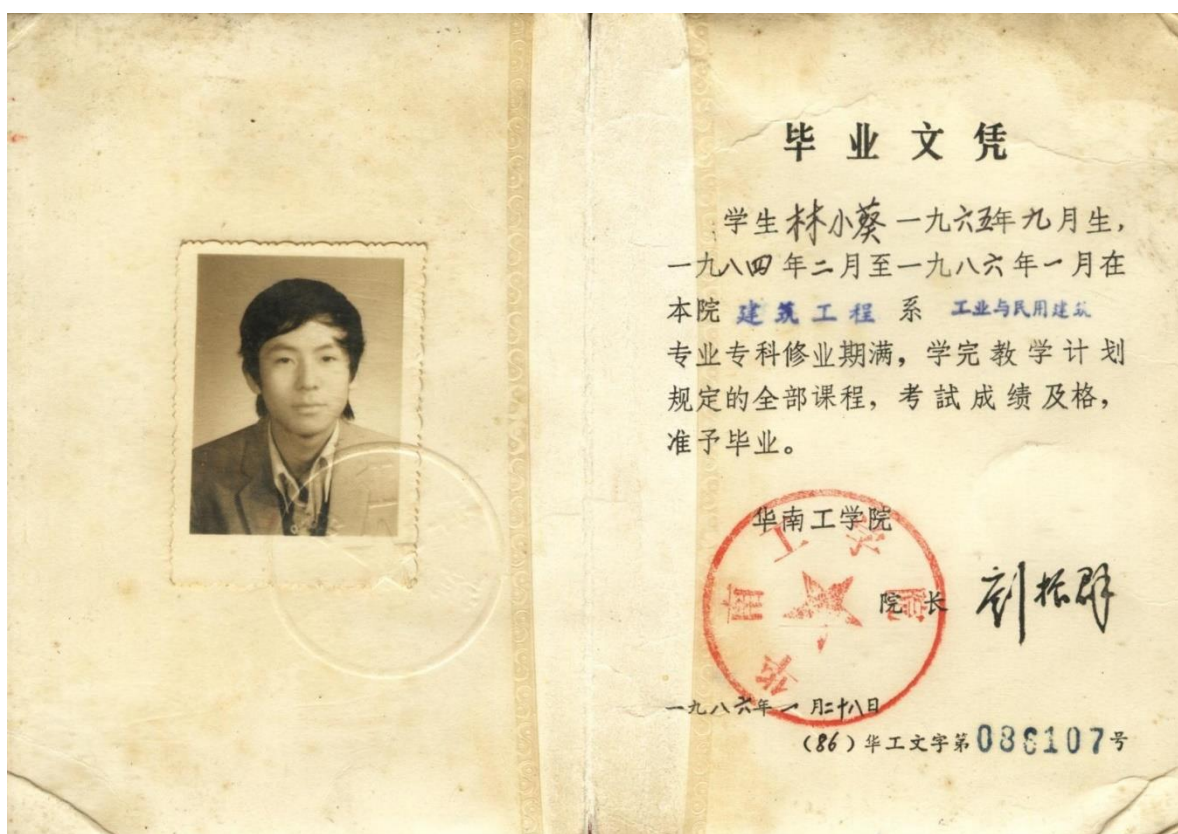 毕业文凭
学生林小葵一九六五年九月生,
一九八四年二月至一九八六年一月在
本院 建筑工程 系 工业与民用建筑
专业专科修业期满,学完教学计划
规定的全部课程,考試成绩及格,
准予毕业。
华南工学院
华南工学院
院长 刘振群
一九八六年一月二十八日
(86)华工文字第086107号